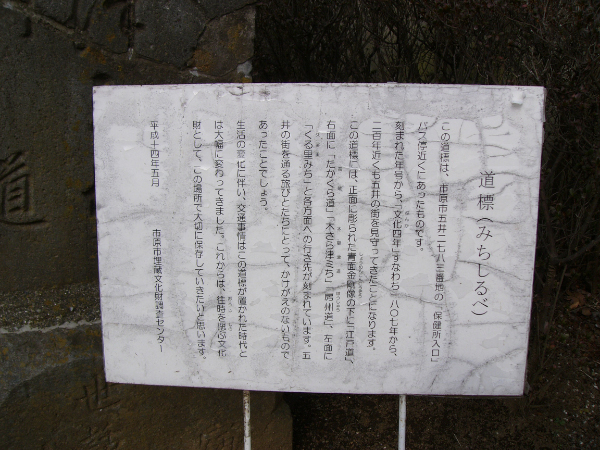 道標（みちしるべ）
この道標は、市原市五井二七八三番地の「保健所入口」
バス停近くにあったものです。
刻まれた年号から、「文化四年」すなわち一八〇七年から、
二百年近くも五井の街を見守ってきたことになります。
この道標には、正面に彫られた青面金剛像の下に「江戸道」、
右面に「たかくら道」「木さら津ミち」「房州道」、左面に
「くる里みち」と各方面への行き先が刻まれています。五
井の街を通る旅びとたちにとって、かけがえのないもので
あったことでしょう。
生活の変化に伴い、交通事情はこの道標が置かれた時代と
は大幅に変わってきました。これからは、往時を偲ぶ文化
財として、この場所で大切に保存していきたいと思います。
平成十四年五月
市原市埋蔵文化財調査センター
道